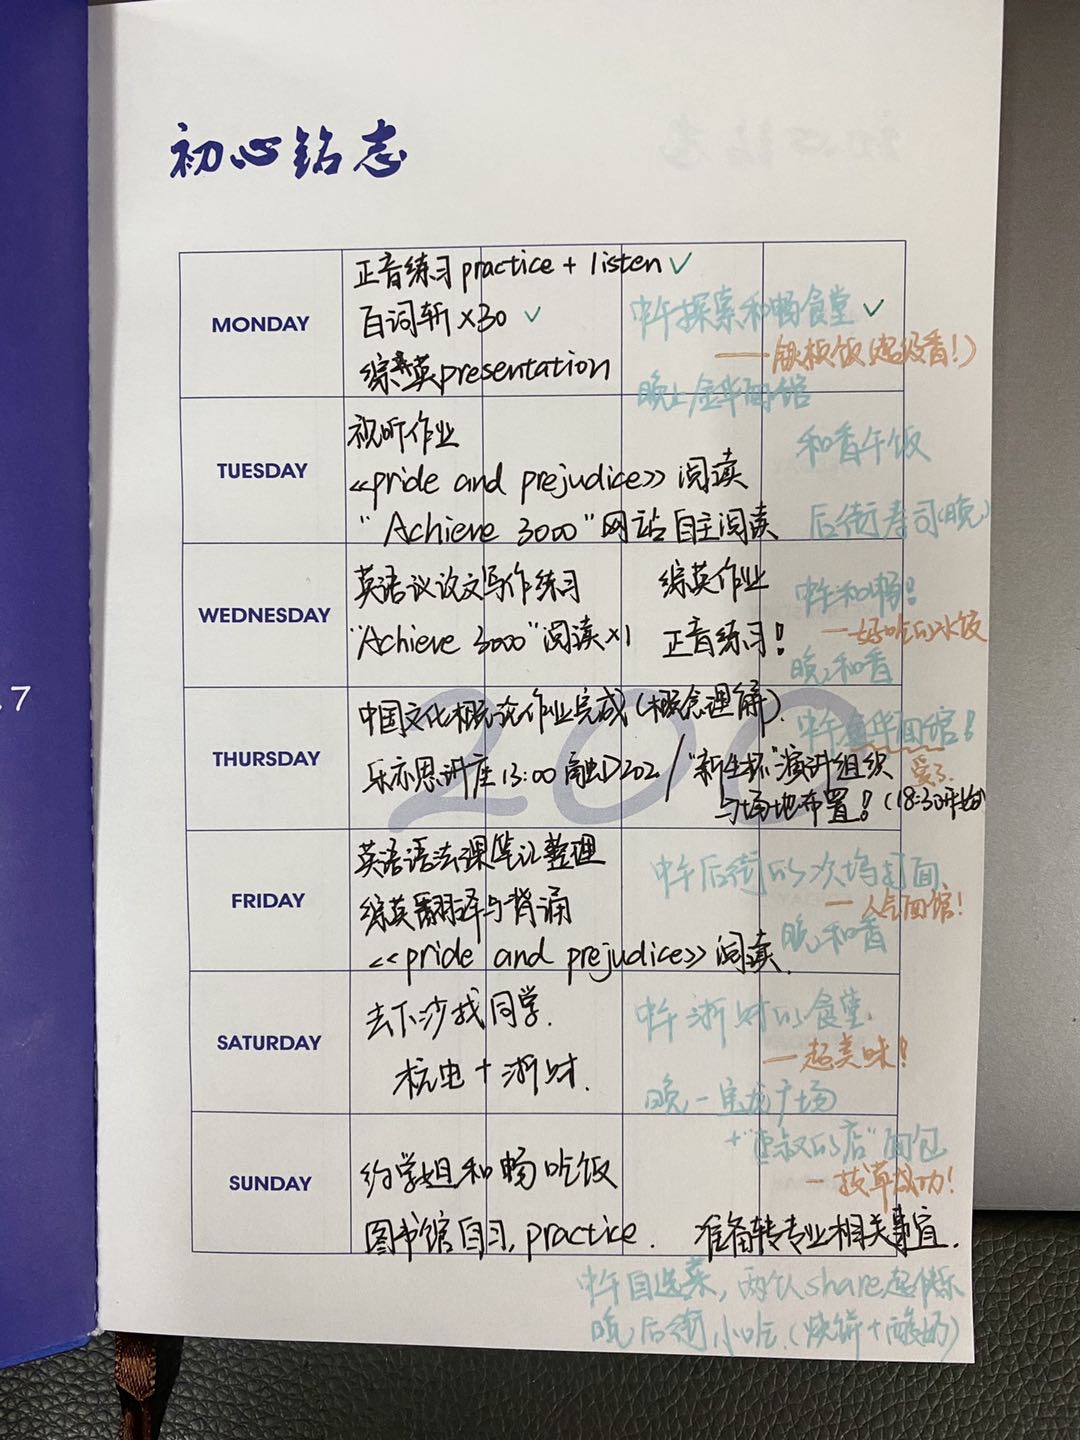 初心铭志
MONDAY
正音练习 practice + listen ✓
百词斩 ×30 ✓
综英 presentation
中午探索和畅食堂 ✓
——铁板饭(超级香!)
晚上金华面馆
TUESDAY
视听作业
《pride and prejudice》阅读
"Achieve 3000"网站自主阅读
和香午饭
后街寿司(晚)
WEDNESDAY
英语议论文写作练习 综英作业
"Achieve 3000"阅读×1 正音练习!
中午和畅!
—好吃的水饺
晚:和香
THURSDAY
中国文化概论作业完成(概念理解).
乐亦思讲座 13:00 融D202 / "新生杯"演讲组织
与场地布置!(18:30开始)
中午金华面馆!
爱了.
FRIDAY
英语语法课笔记整理
综英翻译与背诵
《pride and prejudice》阅读.
中午后街的次坞打面.
—人气面馆!
晚:和香
SATURDAY
去下沙找同学.
杭电+浙财.
中午浙财的食堂.
—超美味!
晚—宝龙广场
+"的店"面包
—拔草成功!
SUNDAY
约学姐和畅吃饭
图书馆自习, practice. 准备转专业相关事宜.
中午自选菜,两个人share,超快乐
晚后街小吃.(烧饼+酸奶)
.7
200